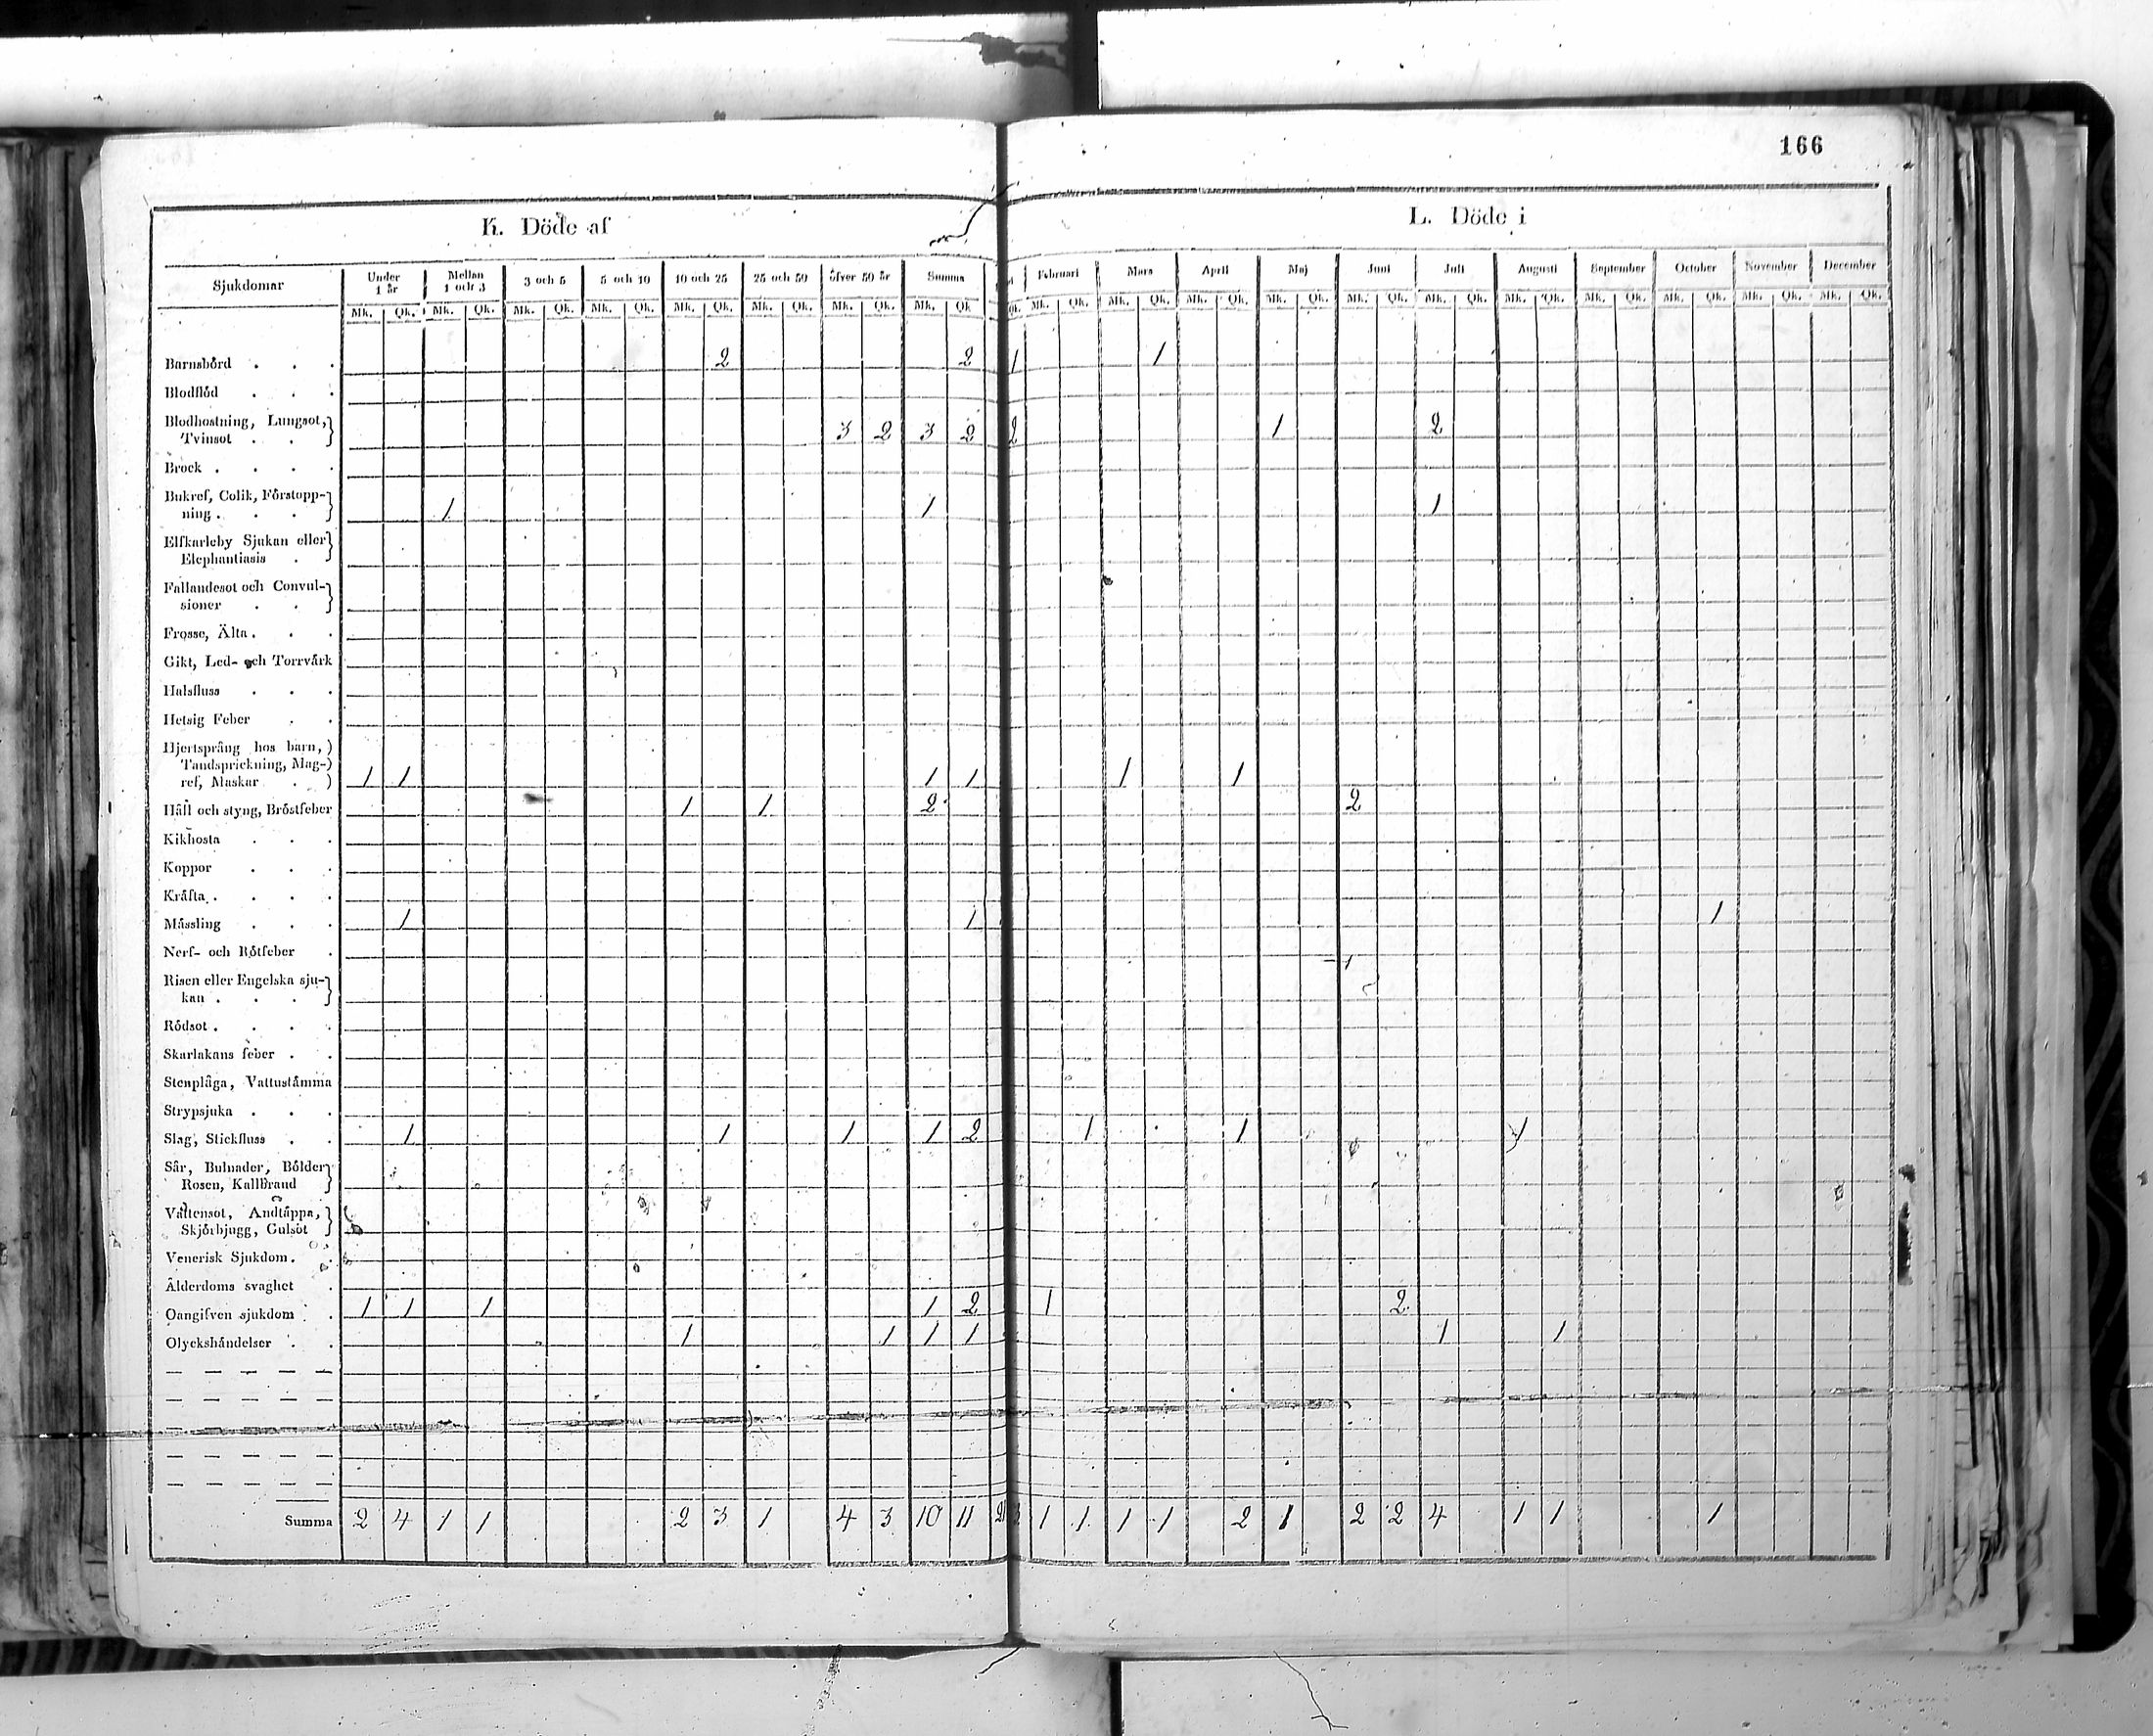 166
K. Döde af
L. Döde i
Sjukdomar Under 1 år Mellan 1 och 3 3 och 5 5 och 10 10 och 25 25 och 50 öfver 50 år Summa Februari Mars April Maj Juni Juli Augusti September October November December
Mk. Qk. Mk. Qk. Mk. Qk. Mk. Qk. Mk. Qk. Mk. Qk. Mk. Qk. Mk. Qk Qk. Mk. Qk. Mk. Qk. Mk. Qk. Mk. Qk. Mk. Qk. Mk. Qk. Mk. Qk. Mk. Qk. Mk. Qk. Mk. Qk. Mk. Qk.
Barnsbörd . . . 2 2 1 1
Blodflöd . . .
Blodhostning, Lungsot,
Tvinsot . . 3 2 3 2 2 1 2
Brock . . . .
Bukref, Colik, Förstopp-
ning . . . 1 1 1
Elfkarleby Sjukan eller
Elephantiasis .
Fallandesot och Convul-
sioner . .
Frosse, Älta . . .
Gikt, Led- och Torrvärk
Halsfluss . . .
Hetsig Feber . .
Hjertsprång hos barn,
Tandsprickning, Mag-
ref, Maskar . 1 1 1 1 1 1
Håll och styng, Bröstfeber 1 1 2 2
Kikhosta . . .
Koppor . . .
Kräfta . . . .
Mässling . . . 1 1 1
Nerf- och Rötfeber .
Risen eller Engelska sju-
kan . . .
Rödsot . . . .
Skarlakans feber . .
Stenplåga, Vattustämma
Strypsjuka . . .
Slag, Stickfluss . . 1 1 1 1 2 1 1 1
Sår, Bulnader, Bölder
Rosen, Kallbrand
Vattensot, Andtäppa,
Skjörbjugg, Gulsot
Venerisk Sjukdom . .
Ålderdoms svaghet .
Oangifven sjukdom . 1 1 1 1 2 1 2
Olyckshändelser . . 1 1 1 1 1 1
Summa 2 4 1 1 2 3 1 4 3 10 11 21 3 1 1 1 1 2 1 2 2 4 1 1 1